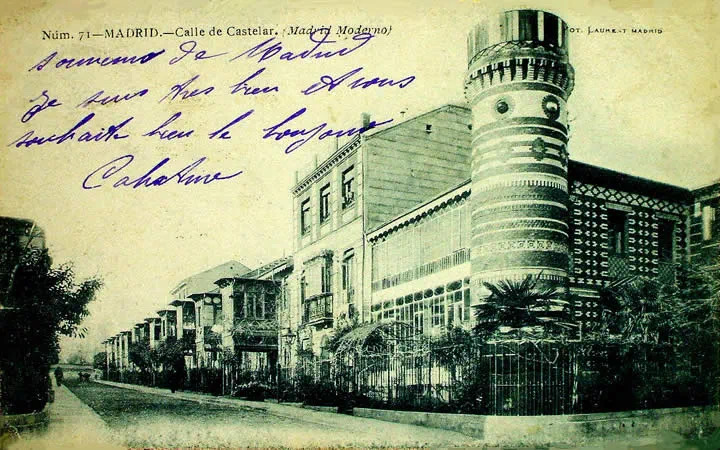 Núm. 71—MADRID.—Calle de Castelar. (Madrid Moderno)
OT. LAURENT MADRID
souvenir de Madrid
Je suis tres bien et vous
souhaite bien le bonjour